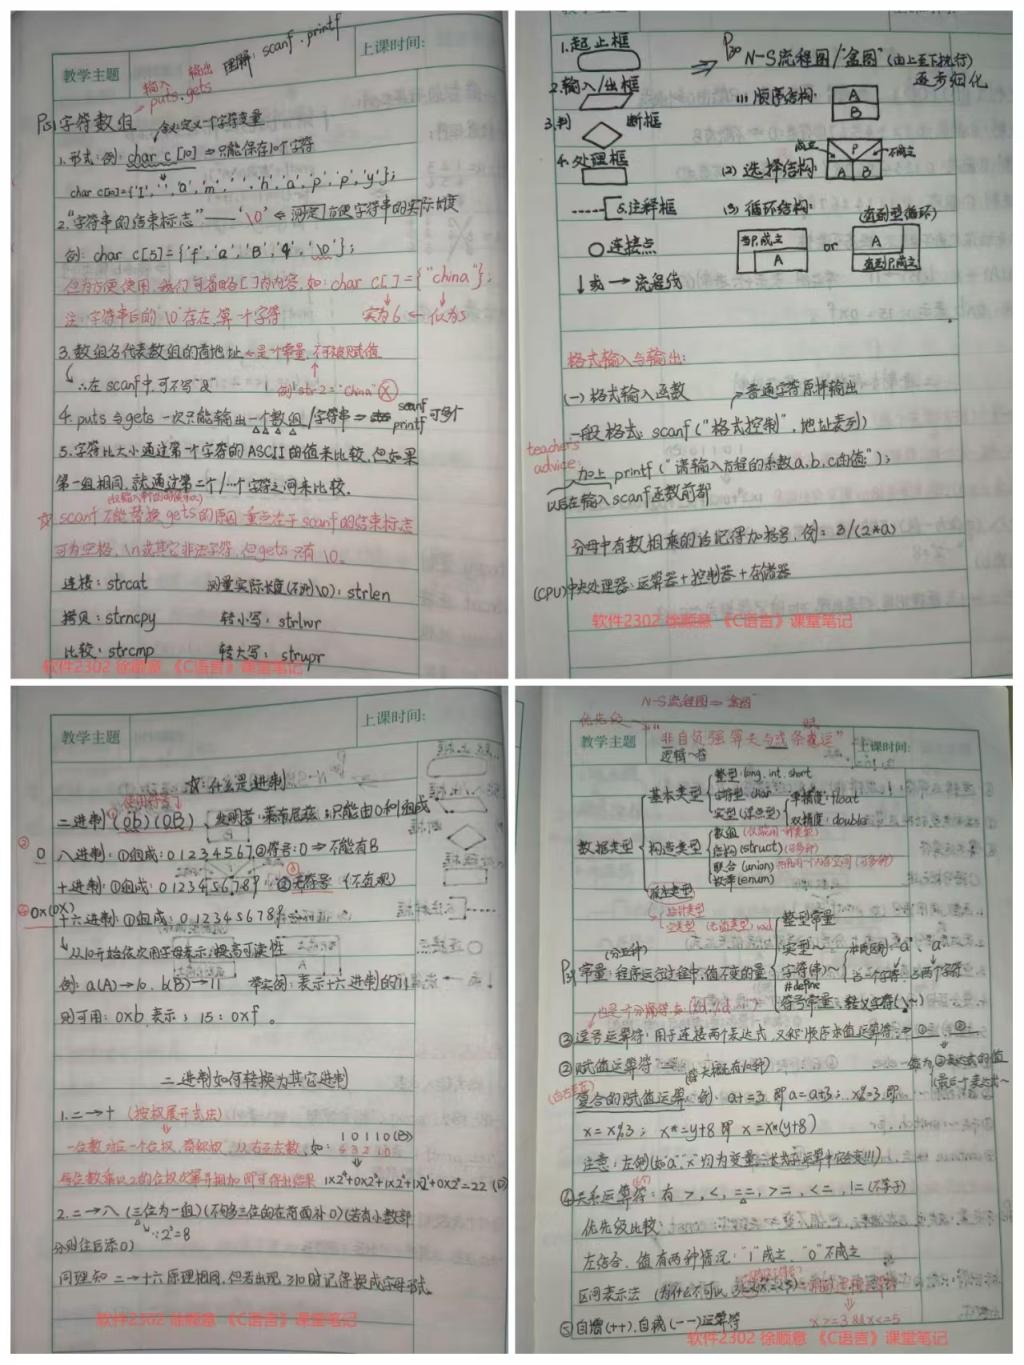 教学主题
输入 输出
puts. gets
理解: scanf. printf
上课时间:
P51 字符数组
1. 形式: 例: char c[10] ⇒ 只能保存10个字符
2. "字符串的结束标志" —— '\0' ⇐ 测定方便字符串的实际长度
例: char c[5]={'f','a','B','4','\0'};
但为方便使用, 我们可省略[]内内容, 如: char c[]={"china"};
注: 字符串后的'\0'存在, 算一个字符
实为6 ← 似为5
3. 数组名代表数组的首地址 ← 是一个常量, 不可被赋值
∴在scanf中可不写"&"
例 str2="china" ⊗
4. puts与gets 一次只能输出一个数组/字符串 ⇒ scanf printf 可多个
5. 字符比大小通过第一个字符的ASCII的值来比较, 但如果
第一组相同, 就通过第二个/…个字符之间来比较.
☆ scanf不能替换gets的原因: 重点在于scanf的结束标志
可为空格, \n或其它非法字符, 但gets只有\0。
连接: strcat
测量实际长度(不测\0): strlen
拷贝: strncpy
转小写: strlwr
比较: strcmp
转大写: strupr
软件2302 徐顺意 《C语言》课堂笔记
1. 起止框
2. 输入/出框
3. 判断框
4. 处理框
5. 注释框
连接点
↓或→ 流程线
P30
⇒ N-S流程图/"盒图" (由上至下执行)
逐步细化
(1) 顺序结构:
A
B
(2) 选择结构:
成立
P
不成立
A
B
(3) 循环结构:
当P1成立
A
or
(直到型循环)
A
直到P1成立
格式输入与输出:
(一) 格式输入函数
普通字符原样输出
一般格式: scanf("格式控制", 地址表列)
teacher's
advice:
加上 printf("请输入方程的系数a,b,c的值:");
以后在输入scanf函数前都
分母中有数相乘的话记得加括号, 例: B/(2*a)
(CPU)中央处理器: 运算器+控制器+存储器
软件2302 徐顺意 《C语言》课堂笔记
教学主题
上课时间:
☆: 什么是进制
使用符号
二进制 (0b)(0B)
发明者: 莱布尼兹; 只能由0和1组成
八进制: ①组成: 0 1 2 3 4 5 6 7 ②符号: 0 ⇒ 不能有8
十进制: ①组成: 0 1 2 3 4 5 6 7 8 9 ②无符号
0x(0X)
十六进制: ①组成: 0 1 2 3 4 5 6 7 8 9
从10开始依次用字母表示; 提高可读性
例: a(A)→10. b(B)→11 举实例: 表示十六进制的11
则可用: 0xb 表示; 15: 0xf 。
二进制如何转换为其它进制
1. 二→十 (按权展开式法)
一位数对应一个位权, 奇称权, 从右至左数, 如:
1 0 1 1 0 (B)
4 3 2 1 0
2. 二→八 (三位为一组)(不够三位的在前面补0)(若有小数部
分则往后添0)
∵2³=8
同理如 二→十六原理相同, 但若出现≥10时记得换成字母形式.
软件2302 徐顺意 《C语言》课堂笔记
N-S流程图 ⇒ "盒图"
优先级
教学主题
上课时间:
数据类型
基本类型
整型: long. int. short
字符型: char
实型(浮点型)
单精度: float
双精度: double
构造类型
数组
结构(struct)
联合(union)
枚举(enum)
指针类型
空类型 (无值类型) void
(分五种)
常量: 程序运行过程中, 值不变的量
整型常量
实型~
字符(串)~
#define
符号常量
转义字符(\~)
③ 逗号运算符: 用于连接两个表达式, 又称"顺序求值运算符"
② 赋值运算符
(自右至左)
复合的赋值运算 例: a+=3 即 a=a+3; x%=3 即
x=x%3; x*=y+8 即 x=x*(y+8)
④ 关系运算符: 有 >, <, ==, >=, <=, != (不等于)
优先级比较:
左结合, 值有两种情况: "1"成立, "0"不成立
区间表示法
x>=3 && x<=5
⑤ 自增(++), 自减(--)运算符
软件2302 徐顺意 《C语言》课堂笔记